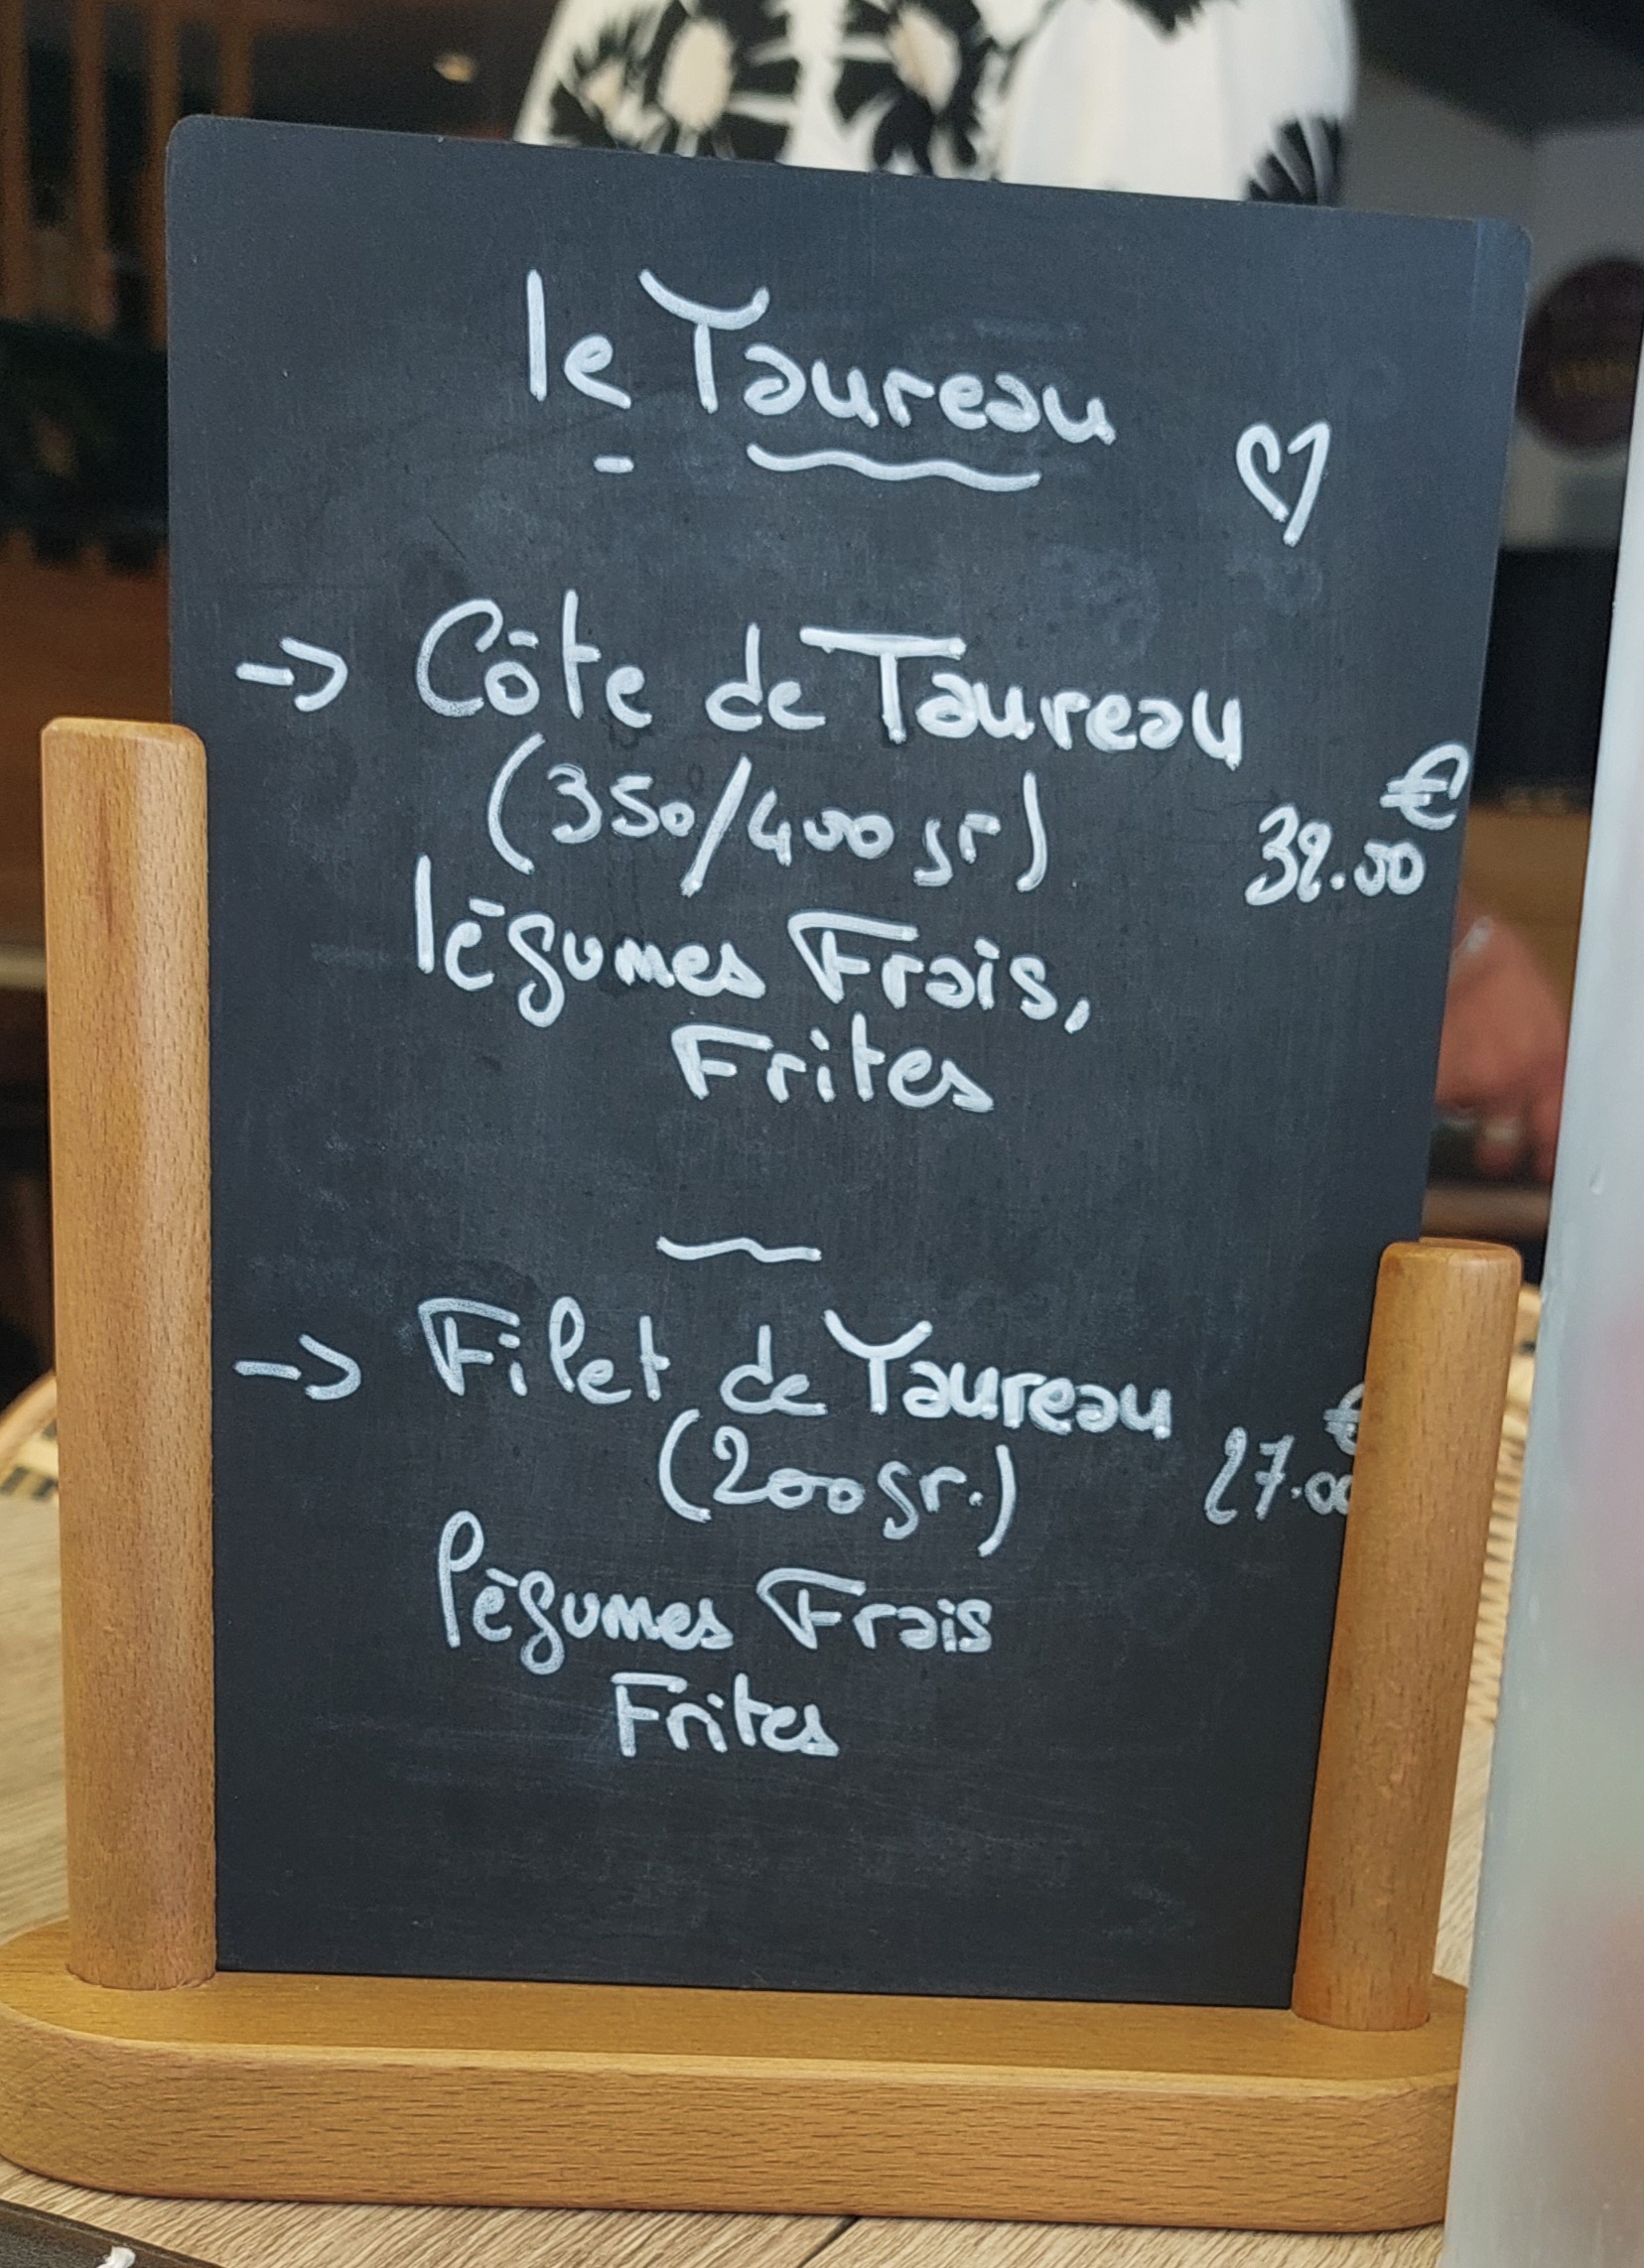 le Taureau
-> Côte de Taureau
(350/400 gr)
€
légumes Frais,
Frites
-> Filet de Taureau
(200gr.)
27.00 €
légumes Frais
Frites